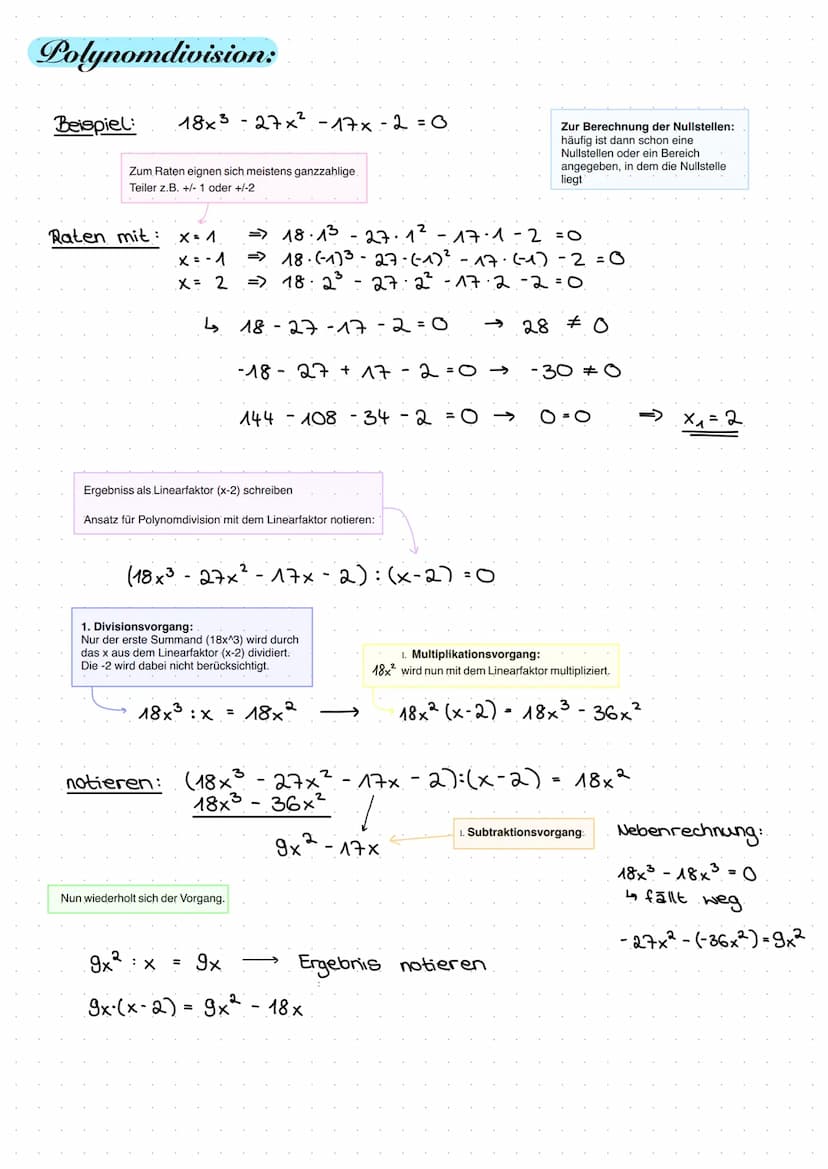 Polynomdivision:
Beispiel: 18x³ - 27x² - 17x - 2 = 0
Zur Berechnung der Nullstellen:
häufig ist dann schon eine
Nullstellen oder ein Bereich
angegeben, in dem die Nullstelle
liegt
Zum Raten eignen sich meistens ganzzahlige
Teiler z.B. +/- 1 oder +/-2
Raten mit: x = 1 ⇒ 18·1³ - 27·1² - 17·1 - 2 = 0
x = -1 ⇒ 18·(-1)³ - 27·(-1)² - 17·(-1) - 2 = 0
x = 2 ⇒ 18·2³ - 27·2² - 17·2 - 2 = 0
↳ 18 - 27 - 17 - 2 = 0 → 28 ≠ 0
-18 - 27 + 17 - 2 = 0 → -30 ≠ 0
144 - 108 - 34 - 2 = 0 → 0 = 0 ⇒ x₁ = 2
Ergebniss als Linearfaktor (x-2) schreiben
Ansatz für Polynomdivision mit dem Linearfaktor notieren:
(18x³ - 27x² - 17x - 2) : (x-2) = 0
1. Divisionsvorgang:
Nur der erste Summand (18x^3) wird durch
das x aus dem Linearfaktor (x-2) dividiert.
Die -2 wird dabei nicht berücksichtigt.
1. Multiplikationsvorgang:
18x² wird nun mit dem Linearfaktor multipliziert.
18x³ : x = 18x² → 18x² (x-2) = 18x³ - 36x²
notieren: (18x³ - 27x² - 17x - 2):(x-2) = 18x²
18x³ - 36x²
9x² - 17x
1. Subtraktionsvorgang:
Nebenrechnung:
18x³ - 18x³ = 0
↳ fällt weg
-27x² - (-36x²) = 9x²
Nun wiederholt sich der Vorgang.
9x² : x = 9x → Ergebnis notieren
9x·(x-2) = 9x² - 18x